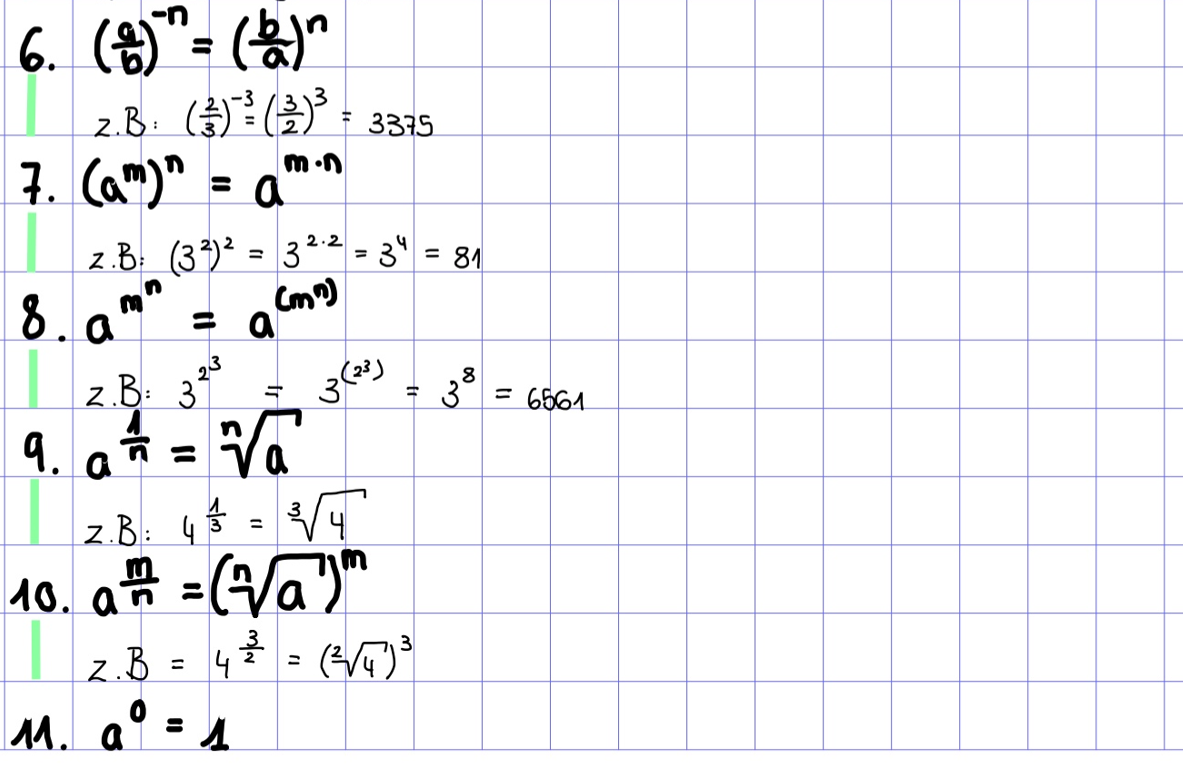 6. (a/b)⁻ⁿ = (b/a)ⁿ
z.B: (2/3)⁻³ = (3/2)³ = 3375
7. (aᵐ)ⁿ = a^(m·n)
z.B: (3²)² = 3^(2·2) = 3⁴ = 81
8. a^m^n = a^(mⁿ)
z.B: 3^2^3 = 3^(2³) = 3⁸ = 6561
9. a^(1/n) = ⁿ√a
z.B: 4^(1/3) = ³√4
10. a^(m/n) = (ⁿ√a)ᵐ
z.B = 4^(3/2) = (²√4)³
11. a⁰ = 1